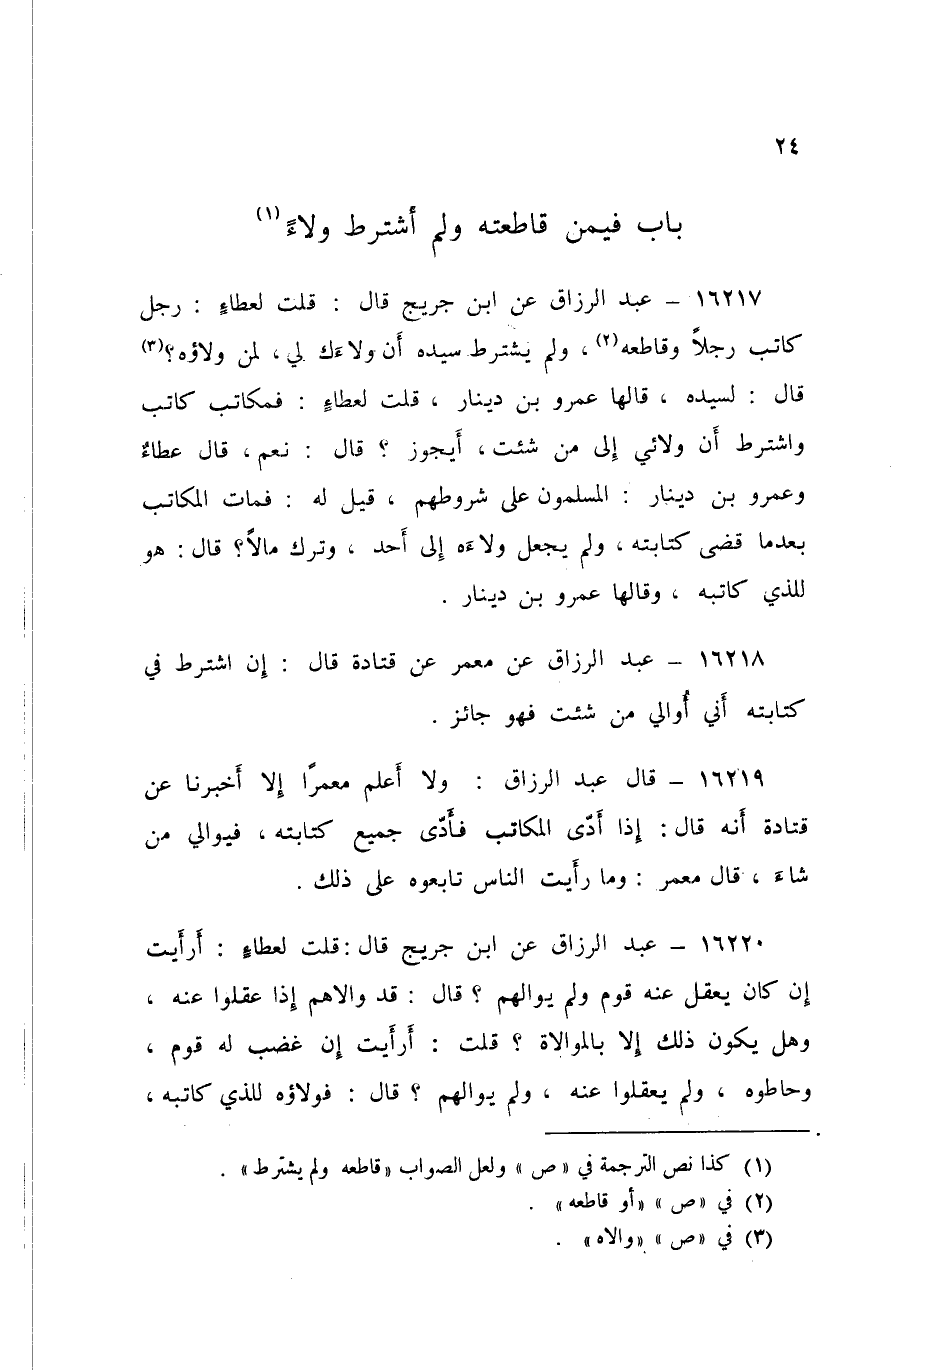 ٢٤
باب فيمن قاطعته ولم أشترط ولاءً(١)
١٦٢١٧ – عبد الرزاق عن ابن جريج قال : قلت لعطاءٍ : رجل
كاتب رجلاً وقاطعه(٢) ، ولم يشترط سيده أن ولاءَك لي ، لمن ولاؤه؟(٣)
قال : لسيده ، قالها عمرو بن دينار ، قلت لعطاءٍ : فمكاتب كاتب
واشترط أن ولائي إلى من شئت ، أيجوز ؟ قال : نعم ، قال عطاءٌ
وعمرو بن دينار : المسلمون على شروطهم ، قيل له : فمات المكاتب
بعدما قضى كتابته ، ولم يجعل ولاءَه إلى أحد ، وترك مالاً؟ قال : هو
للذي كاتبه ، وقالها عمرو بن دينار .
١٦٢١٨ – عبد الرزاق عن معمر عن قتادة قال : إن اشترط في
كتابته أني أُوالي من شئت فهو جائز .
١٦٢١٩ – قال عبد الرزاق : ولا أعلم معمرًا إلا أخبرنا عن
قتادة أنه قال : إذا أدّى المكاتب فأدّى جميع كتابته ، فيوالي من
شاءَ ، قال معمر : وما رأيت الناس تابعوه على ذلك .
١٦٢٢٠ – عبد الرزاق عن ابن جريج قال : قلت لعطاءٍ : أرأيت
إن كان يعقل عنه قوم ولم يوالهم ؟ قال : قد والاهم إذا عقلوا عنه ،
وهل يكون ذلك إلا بالموالاة ؟ قلت : أرأيت إن غضب له قوم ،
وحاطوه ، ولم يعقلوا عنه ، ولم يوالهم ؟ قال : فولاؤه للذي كاتبه ،
(١) كذا نص الترجمة في «ص» ولعل الصواب «قاطعه ولم يشترط» .
(٢) في «ص» «أو قاطعه» .
(٣) في «ص» «والاه» .